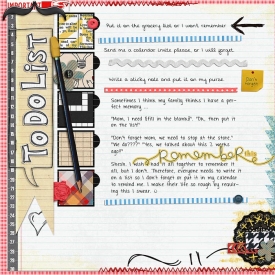 IMPORTANT
TO DO LIST
Put it on the grocery list or I won't remember.
Send me a calendar invite please, or I will forget.
Write a sticky note and put it on my purse.
Don't forget
Sometimes I think my family thinks I have a per-
fect memory...
"Mom, I need (fill in the blank)". "Ok, then put it
on the list!"
"Don't forget mom, we need to stop at the store."
"We do????" "Yes, we talked about this 2 weeks
ago!!"
remember this
Sheesh, I wish I had it all together to remember it
all, but I don't. Therefore, everyone needs to write
on a list so I don't forget or put it in my calendar
to remind me. I make their life so rough by requir-
ing this I swear. :)